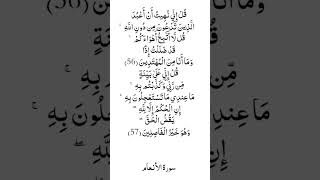 قُلْ إِنِّي نُهِيتُ أَنْ أَعْبُدَ
الَّذِينَ تَدْعُونَ مِن دُونِ اللَّهِ ۚ
قُل لَّا أَتَّبِعُ أَهْوَاءَكُمْ ۙ
قَدْ ضَلَلْتُ إِذًا
وَمَا أَنَا مِنَ الْمُهْتَدِينَ (56)
قُلْ إِنِّي عَلَىٰ بَيِّنَةٍ
مِّن رَّبِّي وَكَذَّبْتُم بِهِ ۚ
مَا عِندِي مَا تَسْتَعْجِلُونَ بِهِ ۚ
إِنِ الْحُكْمُ إِلَّا لِلَّهِ ۖ
يَقُصُّ الْحَقَّ ۖ
وَهُوَ خَيْرُ الْفَاصِلِينَ (57)
سورة الأنعام